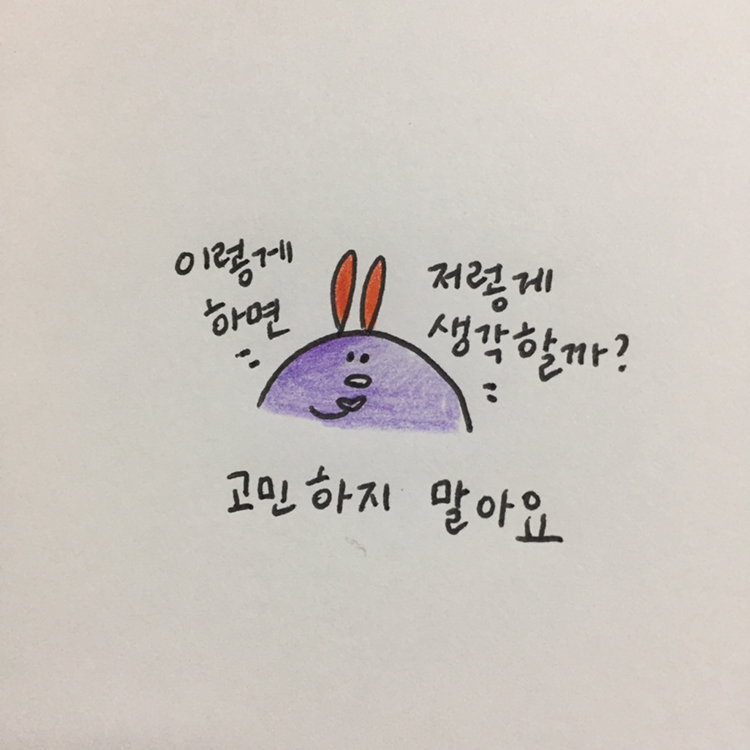 이렇게
하면
저렇게
생각할까?
고민하지 말아요